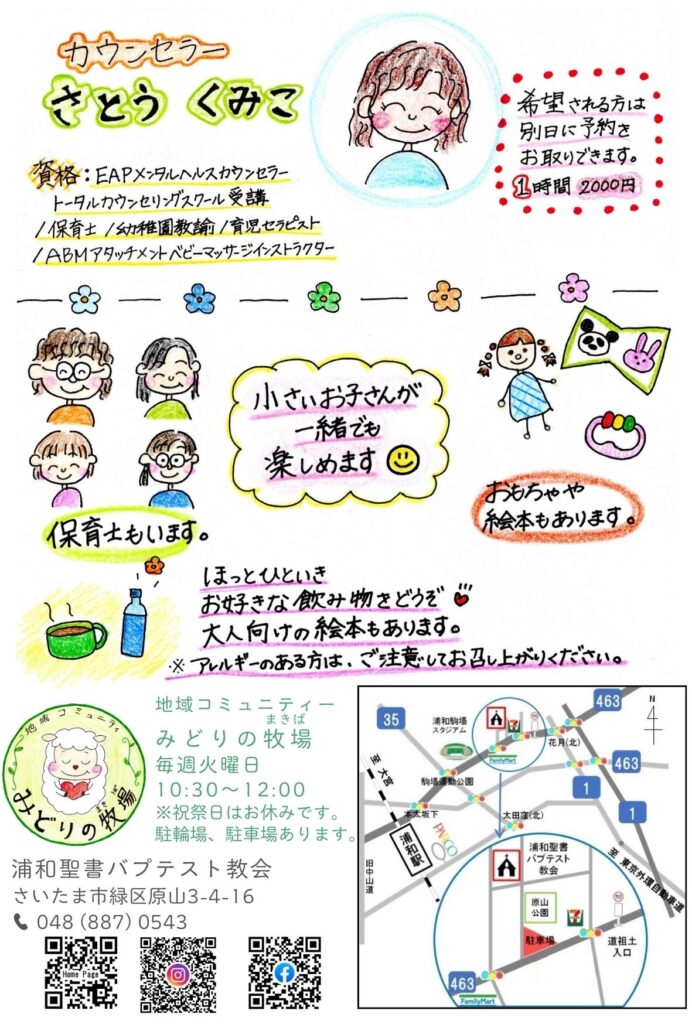 カウンセラー
さとう くみこ
希望される方は
別日に予約を
お取りできます。
1時間 2000円
資格：EAPメンタルヘルスカウンセラー
トータルカウンセリングスクール 受講
/保育士 /幼稚園教諭 /育児セラピスト
/ABMアタッチメントベビーマッサージインストラクター
小さいお子さんが
一緒でも
楽しめます
保育士もいます。
おもちゃや
絵本もあります。
ほっとひといき
お好きな飲み物をどうぞ
大人向けの絵本もあります。
※ アレルギーのある方は、ご注意してお召し上がりください。
地域コミュニティ
みどりの牧場
まきば
地域コミュニティー
まきば
みどりの牧場
毎週火曜日
10:30〜12:00
※祝祭日はお休みです。
駐輪場、駐車場あります。
浦和聖書バプテスト教会
さいたま市緑区原山3-4-16
048 (887) 0543
Home Page
463
N
4
35
浦和駒場
スタジアム
FamilyMart
花月(北)
463
至 大宮
駒場運動公園
1
木太坂下
太田窪(北)
1
PARCO
浦和駅
旧中山道
至 東京外環自動車道
浦和聖書
バプテスト
教会
原山
公園
駐車場
道祖土
入口
463
FamilyMart